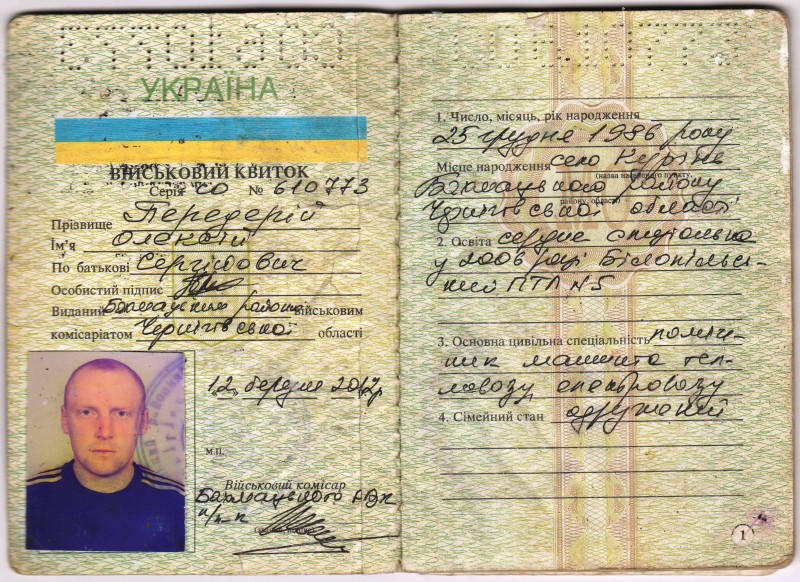 УКРАЇНА
ВІЙСЬКОВИЙ КВИТОК
Серія СО № 610773
Прізвище Передерій
Ім'я Олексій
По батькові Сергійович
Особистий підпис
Виданий Бахмацьким районним військовим
комісаріатом Чернігівської області
"12" березня 2012р
м.п.
Військовий комісар
Бахмацького РВК
п/п-к
1. Число, місяць, рік народження
25 грудня 1986 року
Місце народження село Куріне
(назва населеного пункту,
Бахмацького району
району, області)
Чернігівської області
2. Освіта середня спеціальна
у 2006 році Білопільсь-
кий ПТЛ №5
3. Основна цивільна спеціальність поміч-
ник машиніста теп-
ловозу, електровозу
4. Сімейний стан одружений
1